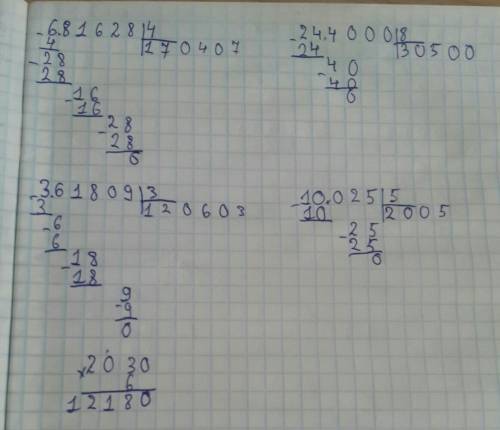 -6.81628|4
4 170407
-28
28
-16
16
-28
28
0
-24.4000|8
24 30500
-40
40
0
-3.61809|3
3 120603
-6
6
-18
18
9
-9
0
-10.025|5
10 2005
-25
25
0
×2030
6
12180